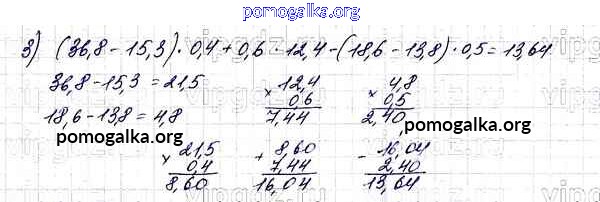 pomogalka.org
3) (36,8 - 15,3) · 0,4 + 0,6 · 12,4 - (18,6 - 13,8) · 0,5 = 13,64
36,8 - 15,3 = 21,5
18,6 - 13,8 = 4,8
12,4
× 0,6
7,44
4,8
× 0,5
2,40
pomogalka.org
pomogalka.org
21,5
× 0,4
8,60
8,60
+ 7,44
16,04
16,04
- 2,40
13,64